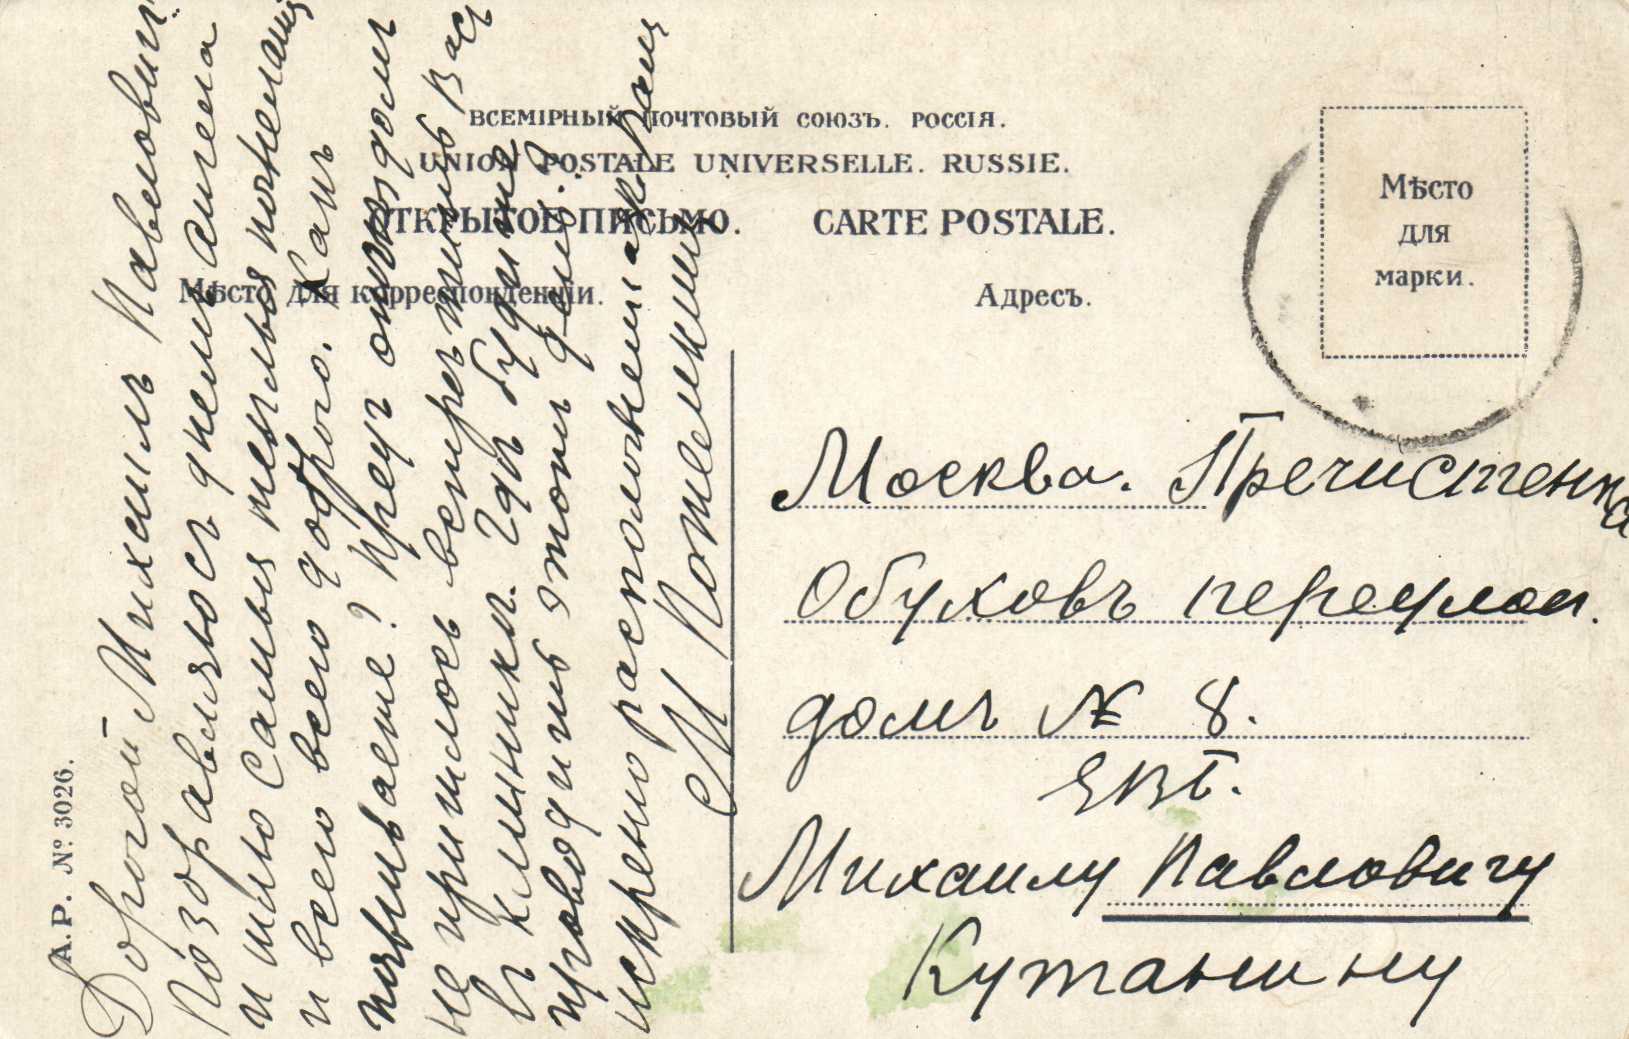 ВСЕМІРНЫЙ ПОЧТОВЫЙ СОЮЗЪ. РОССІЯ.
UNION POSTALE UNIVERSELLE. RUSSIE.
ОТКРЫТОЕ ПИСЬМО. CARTE POSTALE.
Мѣсто для корреспонденціи.
Адресъ.
Мѣсто
для
марки.
А.Р. № 3026.
Дорогой Михаилъ Павловичъ
Поздравляю съ днемъ ангела
и шлю самыя теплыя пожеланія
и всего всего добраго. Какъ
поживаете? Предъ отъѣздомъ
не пришлось встрѣтить Васъ
въ клиникѣ. Гдѣ будете
проводить это лѣто?
искренно расположенный къ Вамъ
М Потемкинъ
Москва. Пречистенка
Обуховъ переулок.
домъ № 8.
ЕВБ.
Михаилу Павловичу
Кутанину